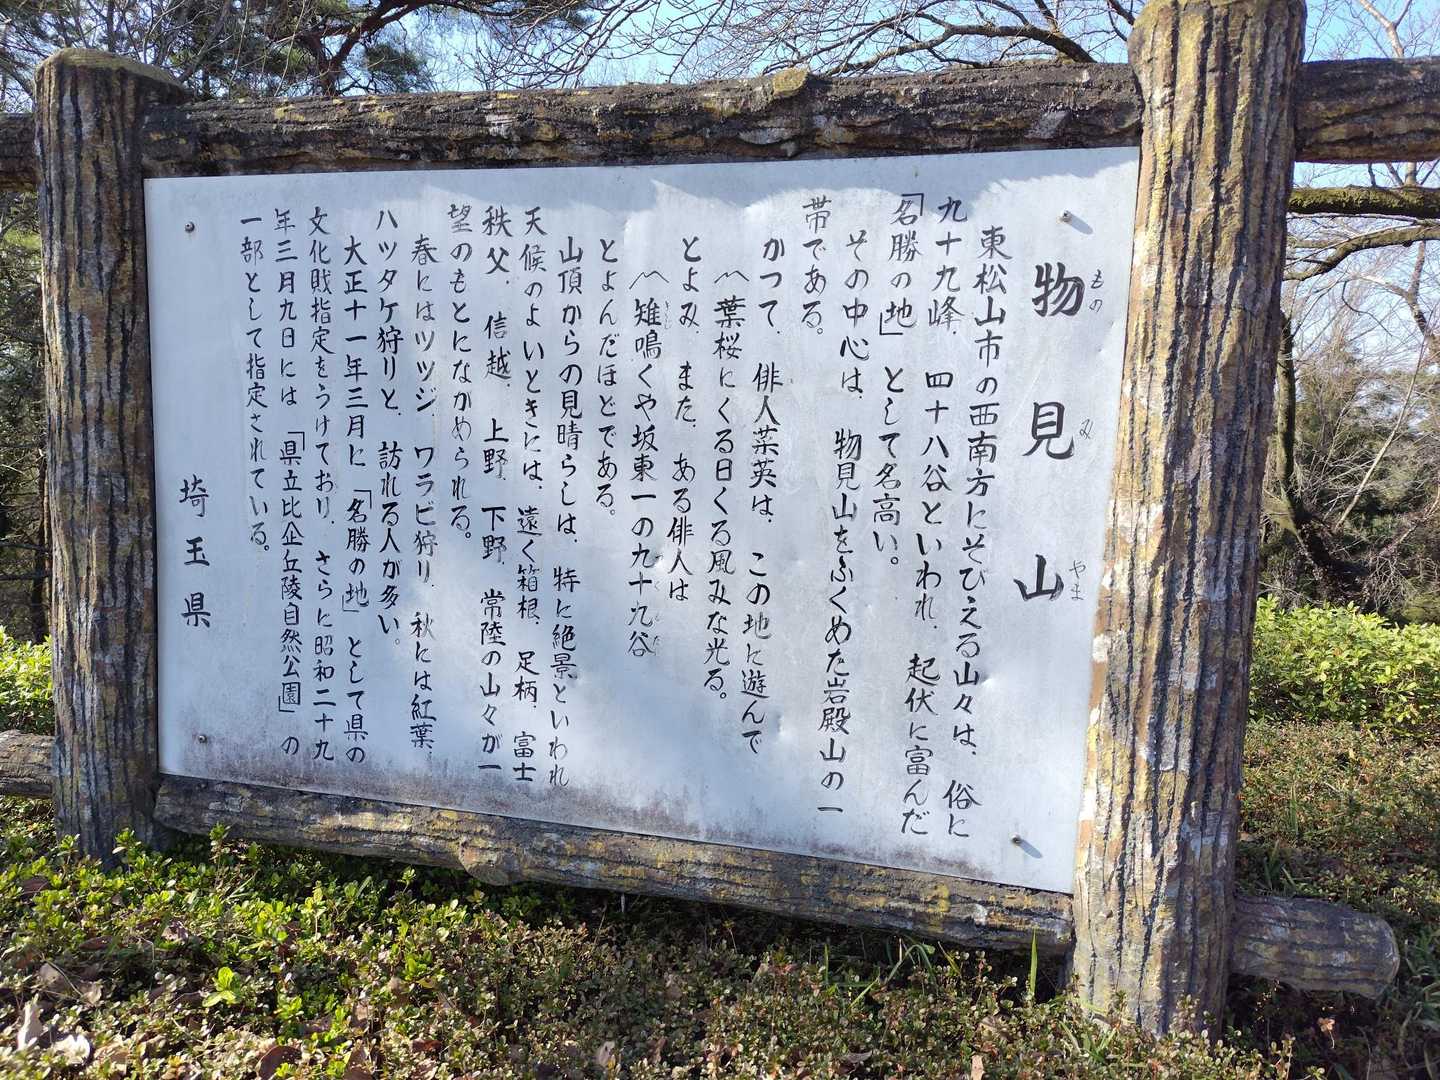 物見山
もの み やま
東松山市の西南方にそびえる山々は、俗に
九十九峰、四十八谷といわれ、起伏に富んだ
「名勝の地」として名高い。
その中心は、物見山をふくめた岩殿山の一
帯である。
かつて、俳人菜英は、この地に遊んで
〽葉桜にくる日くる風みな光る。
とよみ、また、ある俳人は
〽雉鳴くや坂東一の九十九谷
とよんだほどである。
山頂からの見晴らしは、特に絶景といわれ
天候のよいときには、遠く箱根、足柄、富士
秩父、信越、上野、下野、常陸の山々が一
望のもとにながめられる。
春にはツツジ、ワラビ狩り、秋には紅葉、
ハツタケ狩りと、訪れる人が多い。
大正十一年三月に「名勝の地」として県の
文化財指定をうけており、さらに昭和二十九
年三月九日には「県立比企丘陵自然公園」の
一部として指定されている。
埼玉県